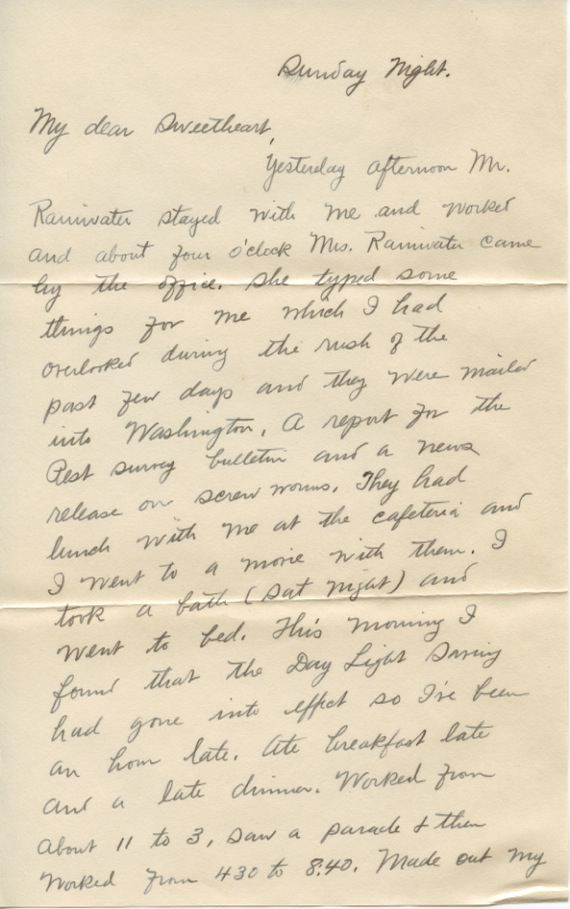 Sunday Night.
My dear Sweetheart,
Yesterday afternoon Mr.
Rainwater stayed with me and worked
and about four o'clock Mrs. Rainwater came
by the office. She typed some
things for me which I had
overlooked during the rush of the
past few days and they were mailed
into Washington. A report for the
Pest survey bulletin and a news
release on screw worms. They had
lunch with me at the cafeteria and
I went to a movie with them. I
took a bath (Sat night) and
went to bed. This morning I
found that the Day Light Saving
had gone into effect so I've been
an hour late. Ate breakfast late
and a late dinner. Worked from
about 11 to 3, saw a parade & then
worked from 430 to 8:40. Made out my